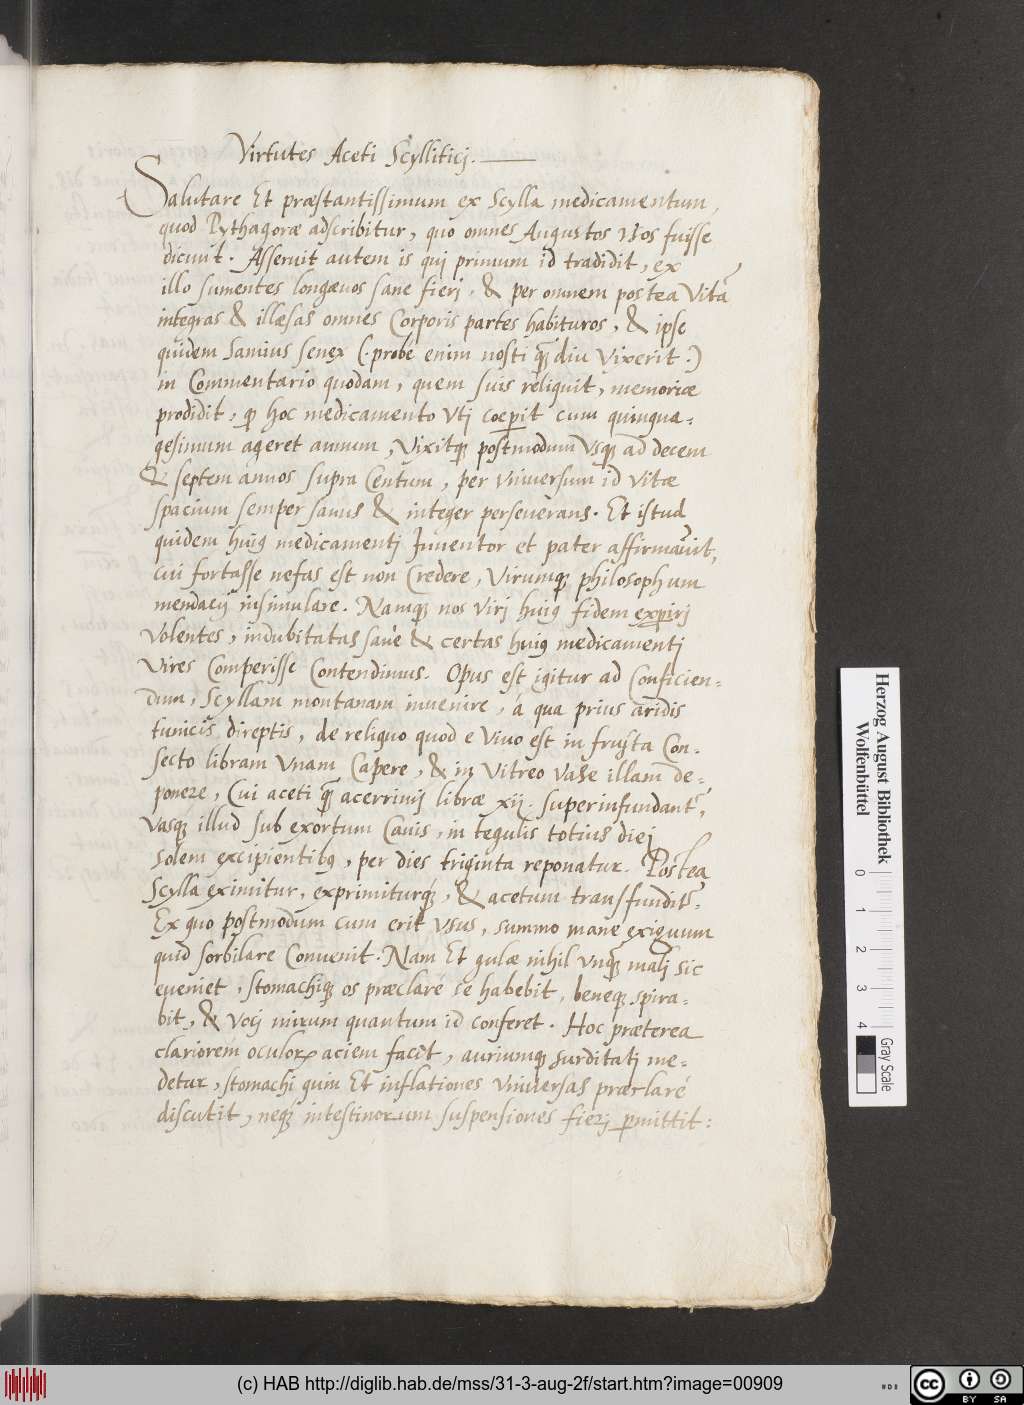 Virtutes Aceti Scylliticj.
Salutare Et præstantissimum ex Scylla medicamentum,
quod Pythagoræ adscribitur, quo omnes Augustos usos fuisse
dicunt. Asseruit autem is quj primum id tradidit, ex
illo sumentes longævos sane fierj, & per omnem postea Vitā
integras & illæsas omnes Corporis partes habituros, & ipse
quidem Samius senex (.probe enim nosti quā diu Vixerit.)
in Commentario quodam, quem suis reliquit, memoriæ
prodidit, ꝙ hoc medicamento Vtj coepit cum quinqua-
gesimum ageret annum, Vixitqꝫ postmodum Vsqꝫ ad decem
& septem annos supra Centum, per Vniuersum id Vitæ
spacium semper sanus & integer perseuerans. Et istud
quidem huiꝰ medicamentj Inuentor et pater affirmauit,
cui fortasse nefas est non Credere, Virumqꝫ philosophum
mendacij insimulare. Namqꝫ nos Virj huiꝰ fidem experirj
Volentes, indubitatas sanè & certas huiꝰ medicamentj
Vires Comperisse Contendimus. Opus est igitur ad Conficien-
dum, Scyllam montanam inuenire, à qua prius aridis
tunicis direptis, de reliquo quod e Viuo est in frusta Con-
secto libram Vnam Capere, & in Vitreo Vase illam de-
ponere, Cui aceti quā acerrimij libræ xij. superinfundantr,
Vasqꝫ illud sub exortum Canis, in tegulis totius diej
Solem excipientibꝰ, per dies triginta reponatur. Postea
Scylla eximitur, exprimiturqꝫ, & acetum transfunditr.
Ex quo postmodum cum erit Vsus, summo mane exiguum
quid sorbilare Conuenit. Nam Et gulæ nihil Vnqꝫ malj sic
eueniet, stomachiqꝫ os præclarè se habebit, beneqꝫ spira-
bit, & Vocj mirum quantum id conferet. Hoc præterea
clariorem oculoꝝ aciem facit, auriumqꝫ surditatj me-
detur, stomachi quin Et inflationes Vniuersas præclarè
discutit, neqꝫ intestinorum suspensiones fierj ꝑmittit:
Herzog August Bibliothek
Wolfenbüttel
0 1 2 3 4
Gray Scale
(c) HAB http://diglib.hab.de/mss/31-3-aug-2f/start.htm?image=00909
cc BY SA